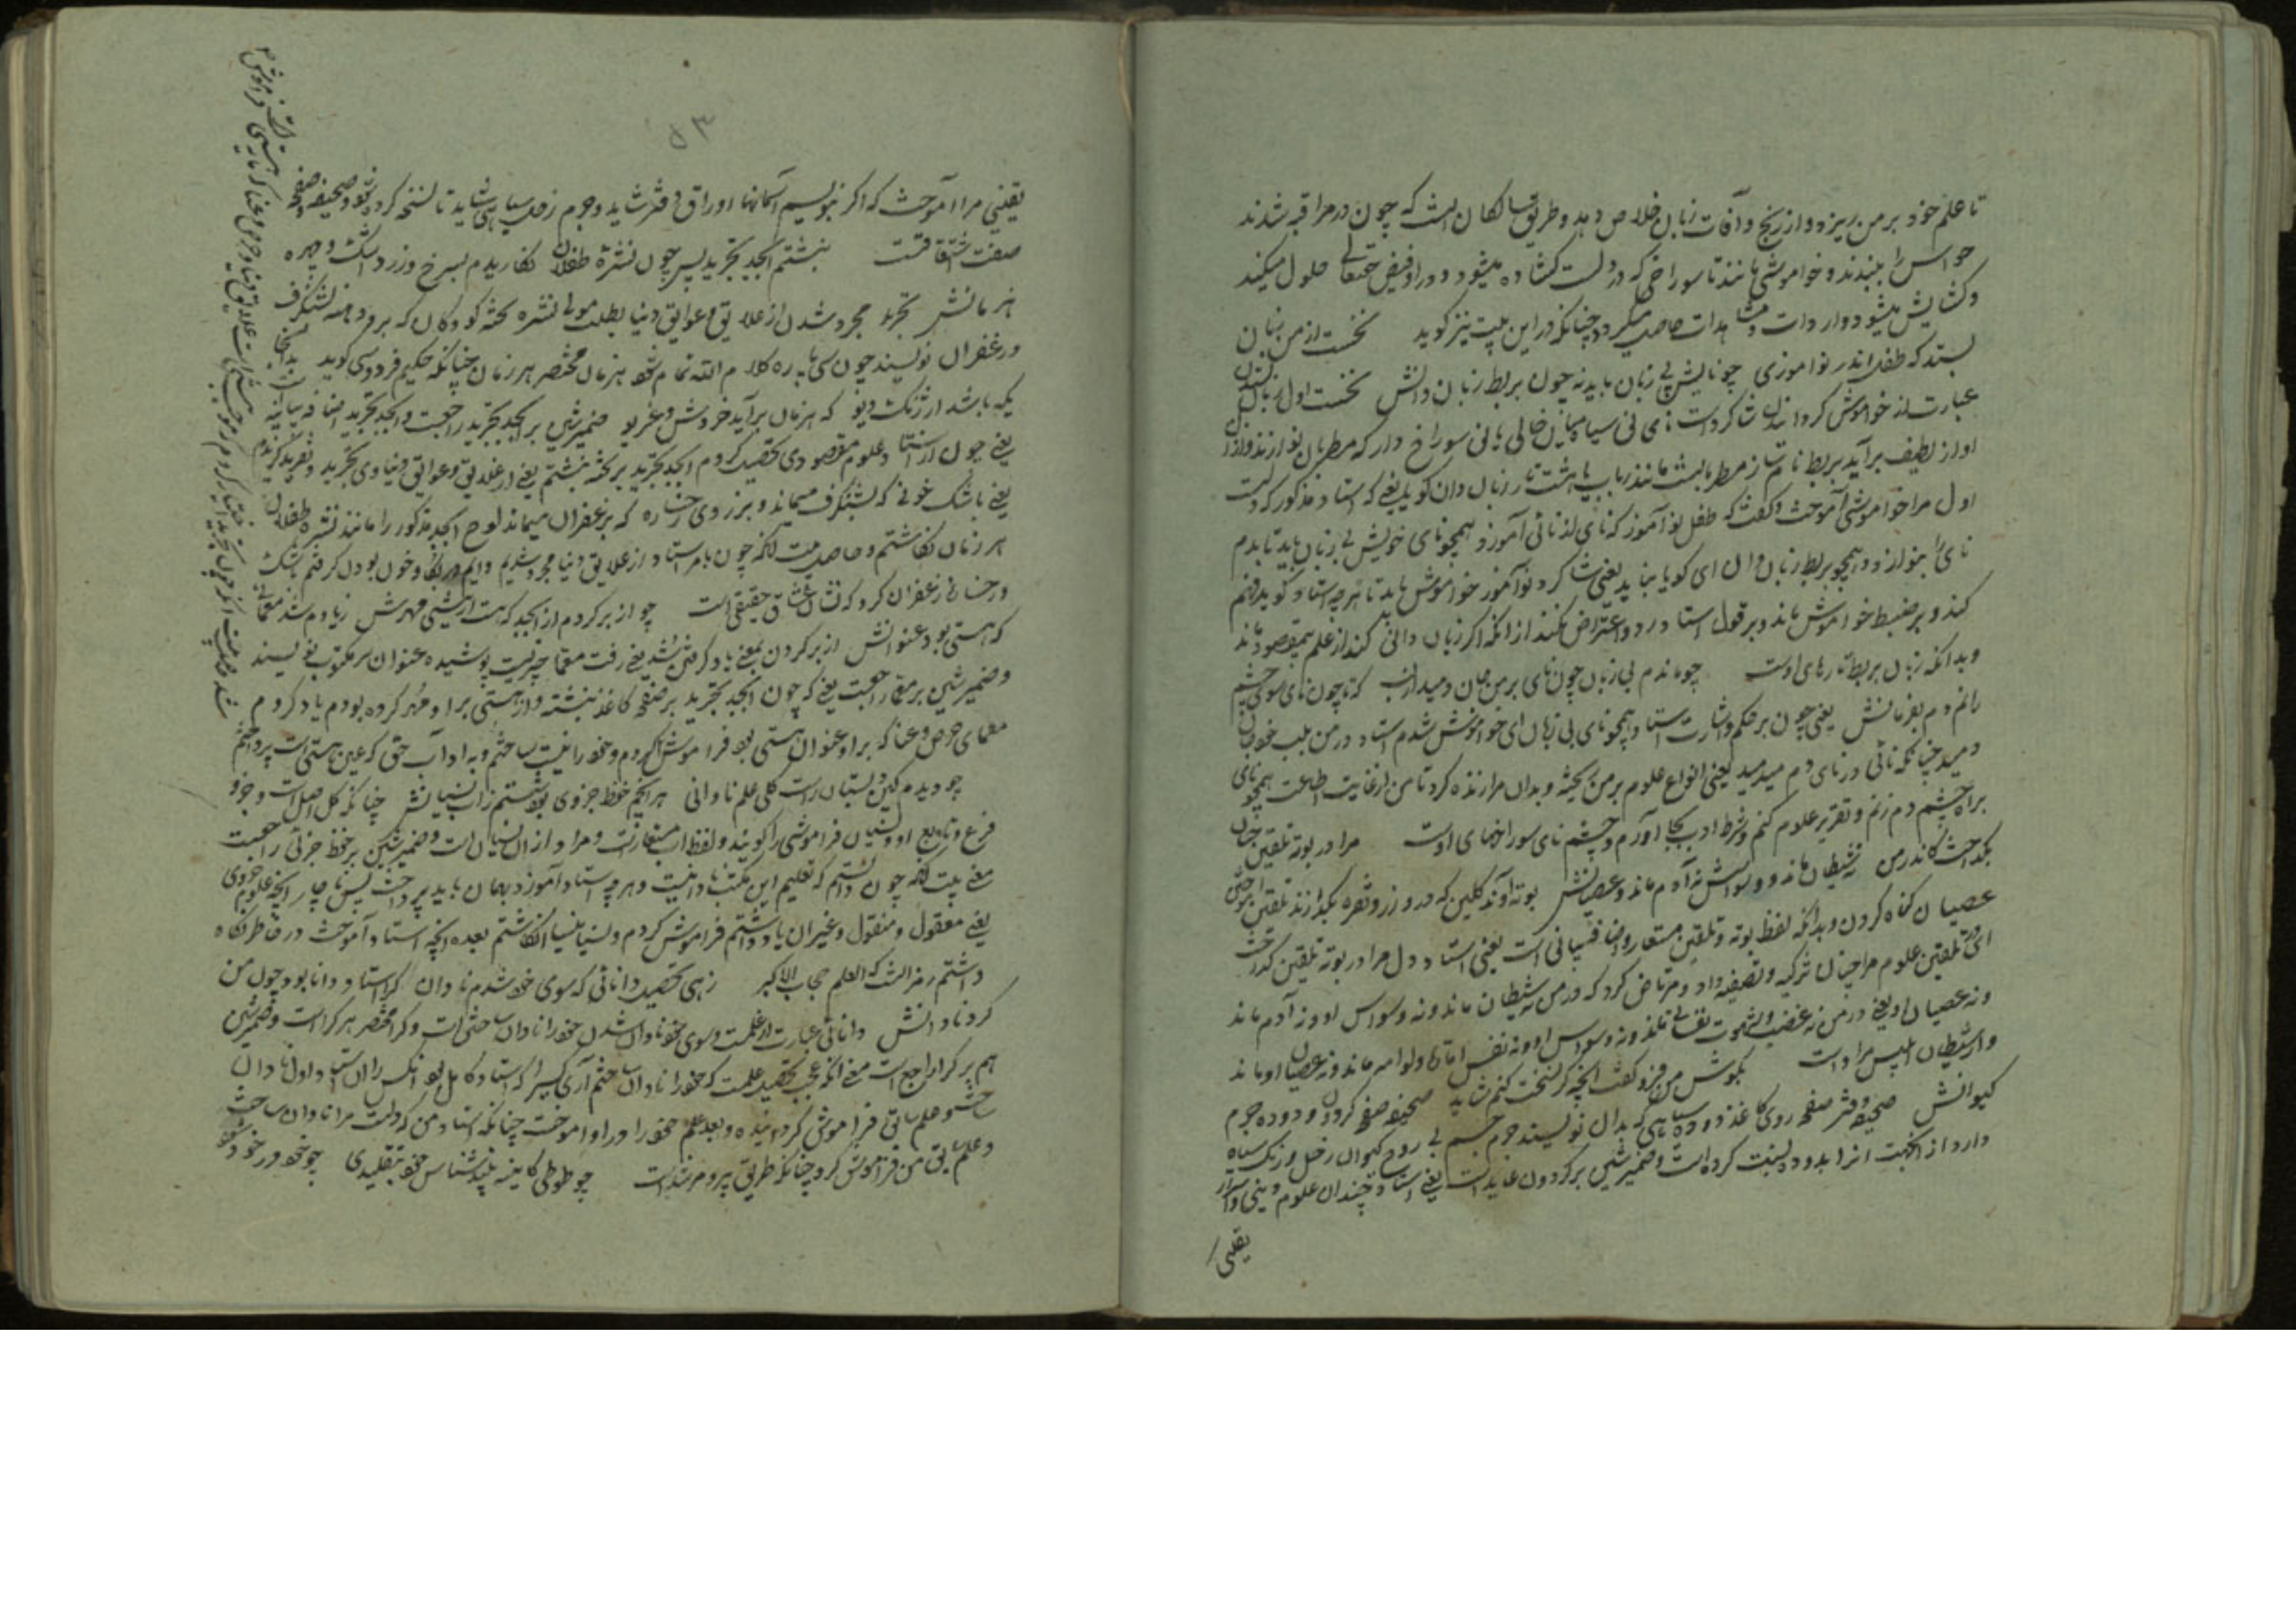 تا علم خود بر من ریزد و از رنج و آفات زبان خلاص دهد و طریق سالکان است که چون در مراقبه شدند
حواس را ببندند و خاموشی مانند تا سوراخی که در دلست کشاده میشود و در او فیض حقتعالی حلول میکند
و کشایش میشود و واردات و مشاهدات حاصل میکردد چنانکه در این بیت نیز کوید نخست از من زبان
بستد که طفل اندر نواموزی چو نایش بی زبان باید نه چون بربط زبان دانش نخست اول زبان بستدن
عبارت از خواموش کردانیدن شاکردست نای نی سیاه میان خالی یا نی سوراخ دار که مطربان نوازند و از آن
اواز لطیف برآید بربط نام ساز مطربانست مانند رباب یا هشت تار زبان دان کویا یعنی که استاد مذکور که دلست
اول مرا خواموشی آموخت و کفت که طفل نوآموز که نای لذنائی آموزد همچو نای خویش بی زبان باید تا بدم
نای را بنوازد و همچو بربط زبان دان ای کویا نباید یعنی شاکرد نوآموز خواموش باید تا هرچه استاد کوید فهم
کند و بر ضبط خواموش ماند و بر قول استاد رد و اعتراض نکند از انکه اکر زبان دانی کند از علم بمقصود نماند
و بدانکه زبان بربط تارهای اوست چو ماندم بی زبان چون نای بر من جان دمید از لب که تا چون نای سوی چشم
رانم دم بفرمانش یعنی چون بر حکم اشارت استاد همچو نای بی زبان ای خواموش شدم استاد در من بلب خود جان
دمید چنانکه نائی در نای دم میدمید یعنی انواع علوم بر من بخشد و بدان مرا زنده کرد تا من از غایت اطاعت همچو نای
براه چشم دم زنم و تقریر علوم کنم و شرط ادب بجا آورم و چشم نای سوراخهای اوست مرا در بوته تلقین چنان
بکداخت کاندر من نه شیطان ماند و وسواسش نه آدم ماند و عصیانش بوته آوند کلین که در و زر و نقره بکدازند تلقین
عصیان کناه کردن و بدانکه لفظ بوته و تلقین مستعار و اضافه بیانی است یعنی استاد دل مرا در بوته تلقین کداخت
ای در تلقین علوم مرا چنان تزکیه و تصفیه داد و مرتاض کرد که در من نه شیطان ماند و نه وسواس او و نه آدم ماند
و نه عصیان او یعنی در من نه غضب و شهوت نفسانی ماند و نه وسواس او و نه نفس اماره و لوامه ماند و نه عصیان او ماند
و از شیطان ابلیس مراد است بکوش من فرو کفت انچه کر نسخت کنم شاید صحیفه صفحه کردون و دوده جرم
کیوانش صحیفه دفتر صفحه روی کاغذ دوده سیاهی که بدان نویسند جرم جسم بی روح کیوان زحل و رنک سیاه
دارد از انجهت انرا بدوده نسبت کرده است و ضمیر شین بر کردون عایدست یعنی استاد چندان علوم دینی و اسرار
یقینی
۵۳
یقینی مرا آموخت که اکر نویسم آسمانها اوراق دفتر شاید و جرم زحل سیاهی شاید تا نسخه کردد و صحیفه صفحه
صفت مشتقاتست نبشتم ابجد تجرید پس چون نشره طفلان نکاریدم بسرخ و زرد و اشک و چهره
هزمانش تجرید مجرد شدن از علایق و عوایق دنیا بطلب مولی نشره تخته کودکان که برو دهنه شنکرف
و زعفران نویسند چون سی پاره کلام الله تمام شود هزمان مختصر هر زمان چنانکه حکیم فردوسی کوید بدانجا
یکه باشد ارژنک دیو که هزمان برآید خروش و غریو ضمیر شین بر ابجد تجرید راجعست و ابجد تجرید اضافه بیانیه است
یعنی چون از استاد علوم مقصودی تحصیل کردم ابجد تجرید بر تخته نبشتم یعنی از علایق و عوایق دنیاوی تجرید و تفرید کزیدم
یعنی باشک خونی که بشنکرف میماند و بزردی رخساره که بزعفران میماند لوح ابجد مذکور را مانند نشره طفلان
هر زمان نکاشتم و حاصل بیت آنکه چون بامر استاد از علایق دنیا مجرد شدیم و خون بود دل کرفتم باشک
و رخسار زعفران کرد که نشان عشاق حقیقی است چو از بر کردم از ابجد که هست از نیستی مهرش ز یادم شد معمائی
که هستی بود عنوانش از بر کردن بمعنی یاد کرفتن بشد یعنی رفت معما چیزیست پوشیده عنوان سر مکتوب نویسند
و ضمیر شین بر معما راجعست یعنی که چون ابجد تجرید بر صفحه کاغذ نبشته و از نیستی برا و مهر کرده بودم یاد کردم
معمای حرص و غنا که براو عنوان هستی بود فراموش کردم و خود را نیست ساختم و به اداب حق که عین هستی است پرداختم
چو دیدم کین دبستان راست کلی علم نادانی هر انچم حفظ جزوی بود شستم ز اب نسیانش چنانکه کل اصل است و جزو
فرع و تابع او و نسیان فراموشی را کویند و لفظ اب مستعار است و مراد از ان نسیان است و ضمیر شین بر حفظ جزئی راجعست
معنی بیت آنکه چون دانستم که تعلیم این مکتب نادانیست و هرچه استاد آموزد بهمان باید پرداخت پس ناچار انچه علوم جزوی
یعنی معقول و منقول و غیر ان یاد داشتم فراموش کردم و نسیا منسیا انکاشتم بعده انچه استاد آموخت در خاطر نکاه
داشتم رمزالست که العلم حجاب الاکبر زهی تحصیل دانائی که سوی خود شدم نادان کرا استاد دانا بود چون من
کرد نادانش دانائی عبارت از علمست و سوی خود نادان شدن خود را نادان ساختن است و کرا مختصر هر کرا است و ضمیر شین
هم بر کرا راجع است معنی آنکه عجب تحصیل علمست که خود را نادان ساختم آری کسیرا که استاد کامل بود انکس را ان استاد اول نادان
ساخت و علم سابق فراموش کردانیده و بعد علم خود را در او اموخت چنانکه استاد من که دلست مرا نادان ساخت
و علم سابق من فراموش کرد چنانکه طریق پیر و مرشد است چو طوطی کاینه بیند شناس خود بتقلیدی چو خود در خود شود